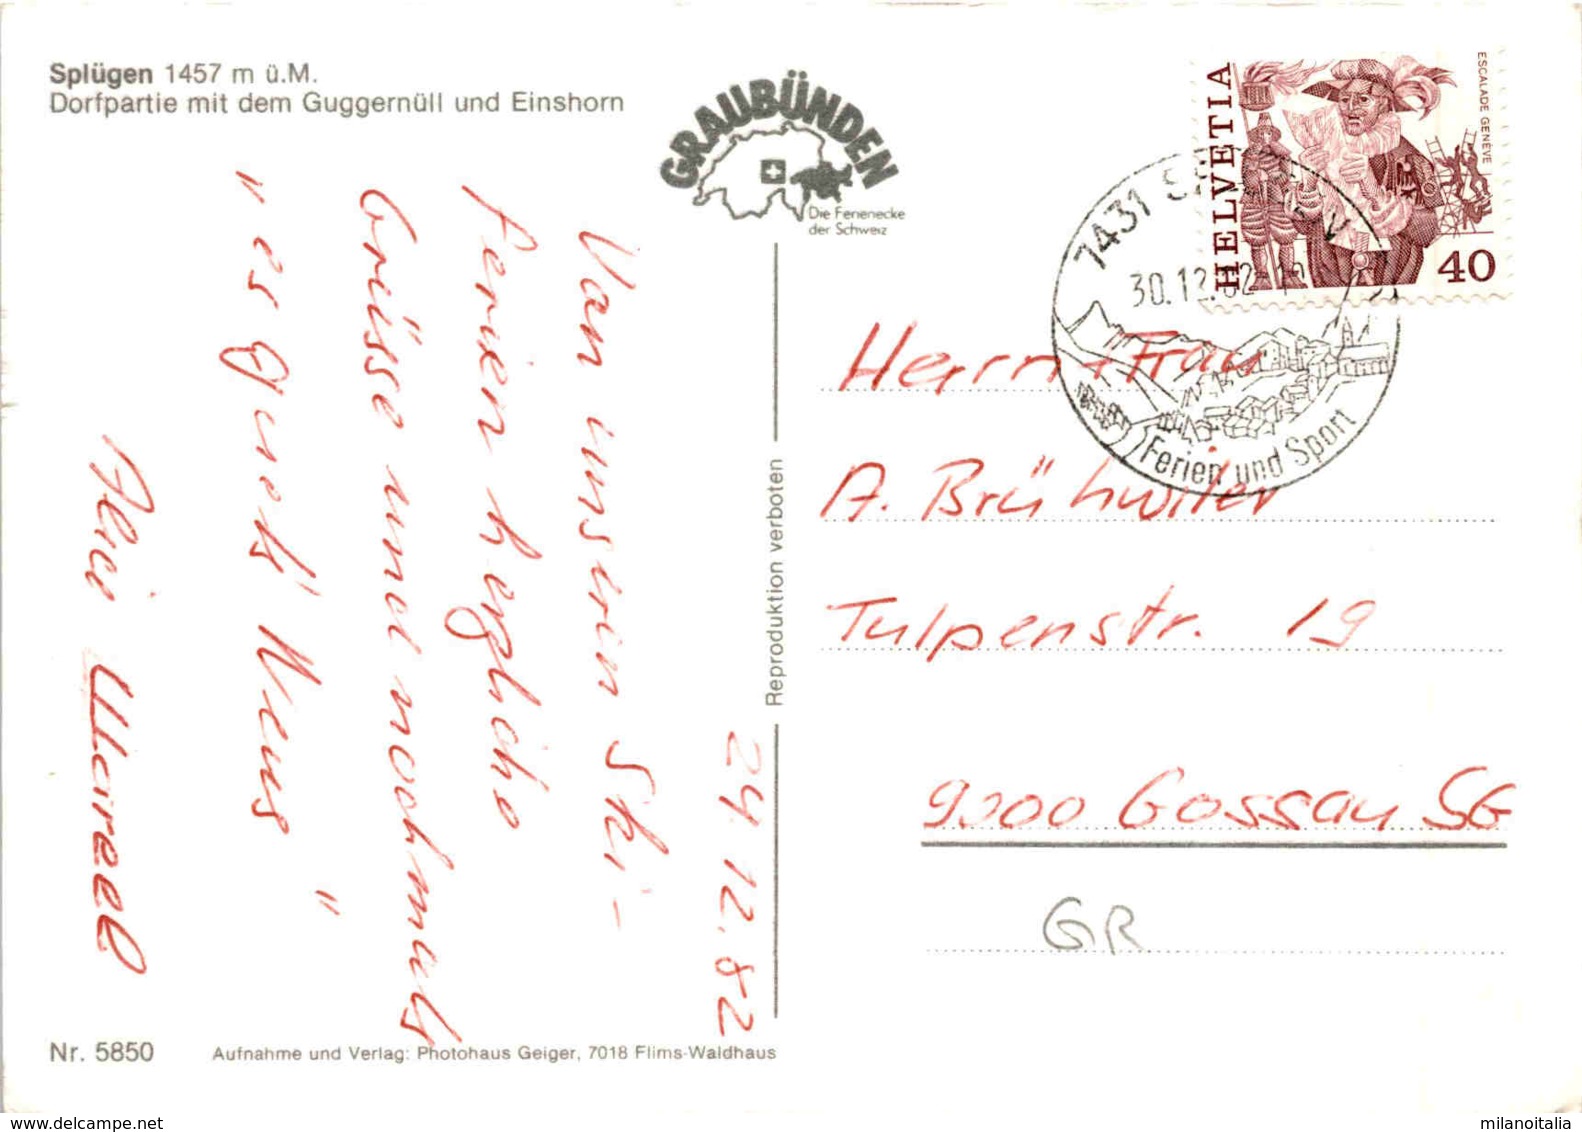 Splügen 1457 m ü.M.
Dorfpartie mit dem Guggernüll und Einshorn
GRAUBÜNDEN
Die Ferienecke
der Schweiz
HELVETIA
ESCALADE GENÈVE
40
7431
30.12.82
Ferien und Sport
24.12.82
Von unseren Ski-
ferien herzliche
Grüsse und nochmals
"es guets Neus"
Marcel
Herrn + Frau
A. Brühwiler
Tulpenstr. 19
9200 Gossau SG
GR
Reproduktion verboten
Nr. 5850
Aufnahme und Verlag: Photohaus Geiger, 7018 Flims-Waldhaus
www.delcampe.net
milanoitalia